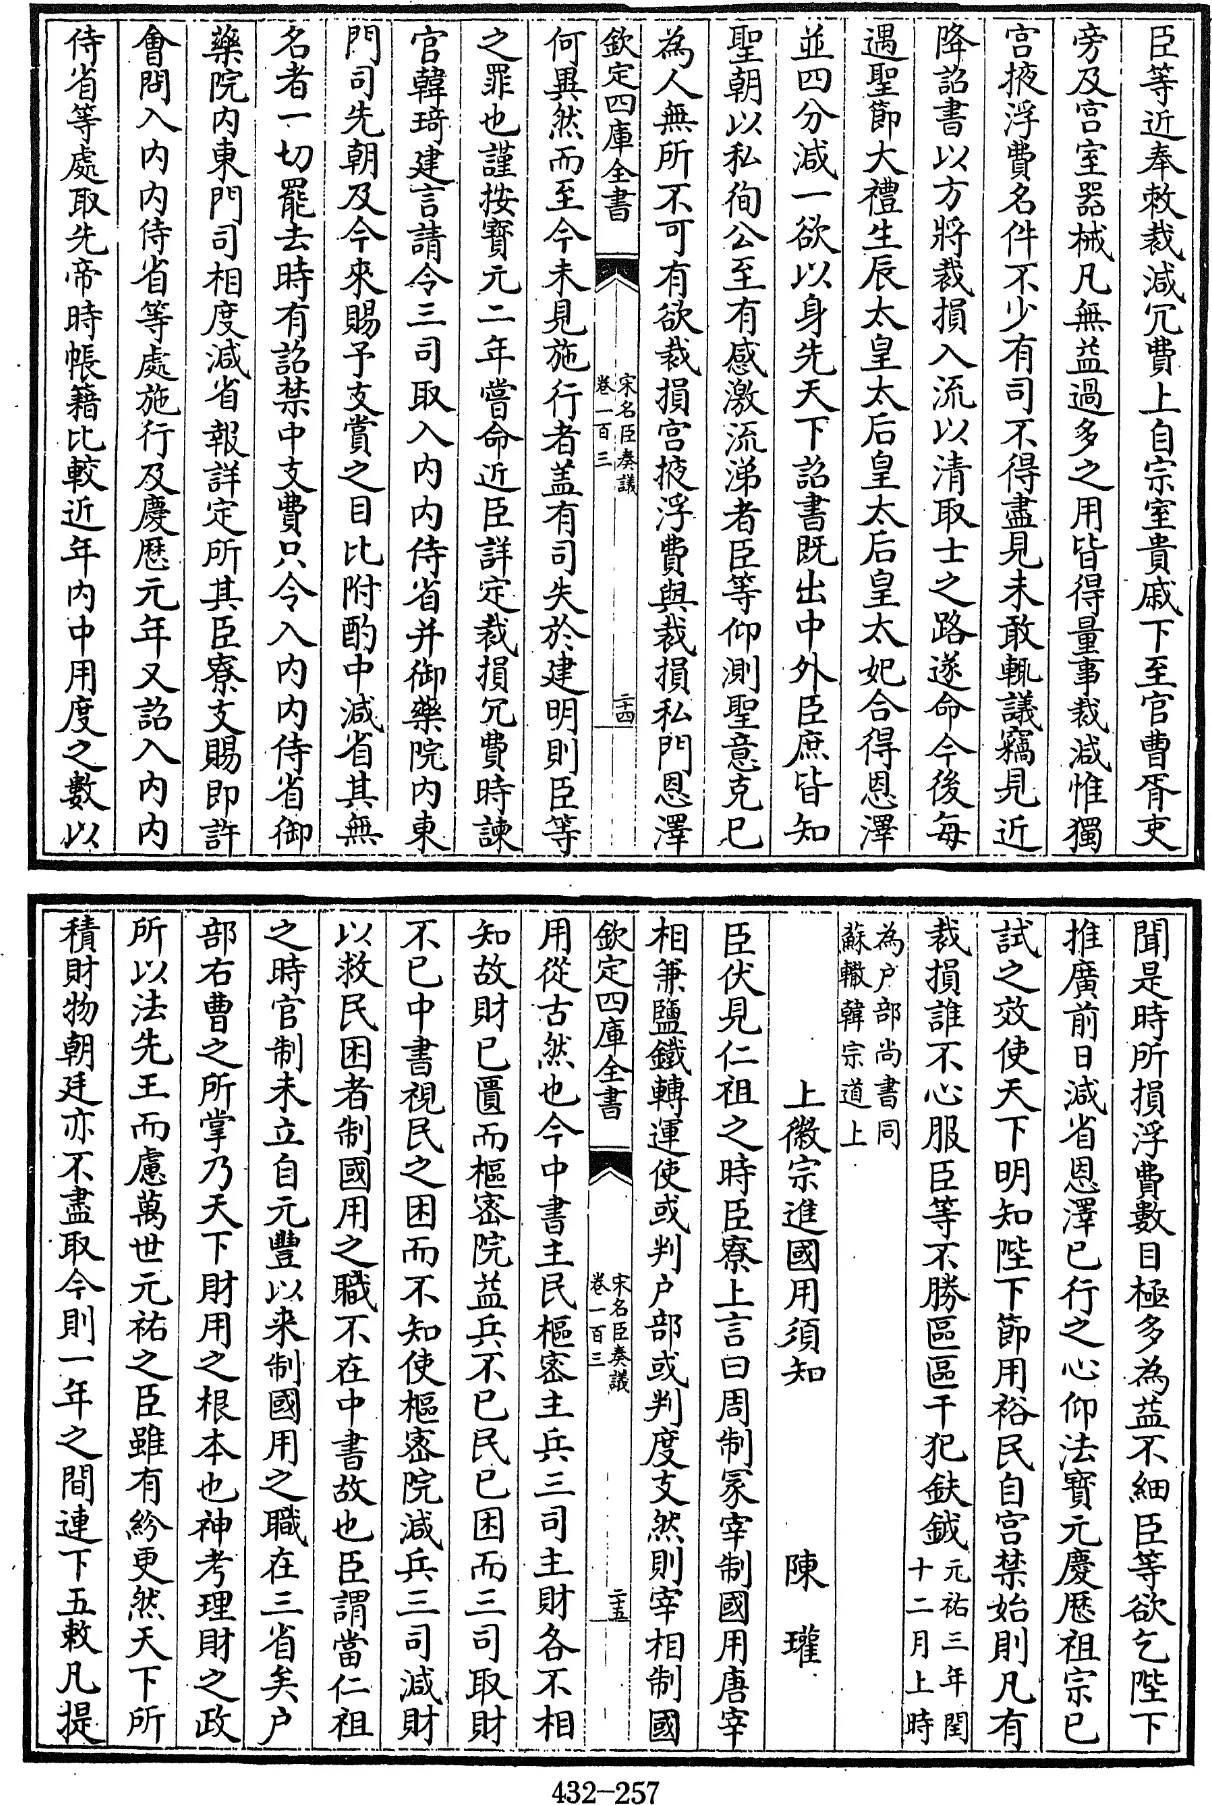 臣等近奉敕裁減冗費上自宗室貴戚下至官曹胥吏
旁及宫室器械凡無益過多之用皆得量事裁減惟獨
宫掖浮費名件不少有司不得盡見未敢輒議竊見近
降詔書以方將裁損入流以清取士之路遂命今後每
遇聖節大禮生辰太皇太后皇太后皇太妃合得恩澤
並四分減一欲以身先天下詔書既出中外臣庶皆知
聖朝以私徇公至有感激流涕者臣等仰測聖意克已
為人無所不可有欲裁損宫掖浮費與裁損私門恩澤
欽定四庫全書
宋名臣奏議
卷一百三
二十四
何異然而至今未見施行者蓋有司失於建明則臣等
之罪也謹按寶元二年嘗命近臣詳定裁損冗費時諫
官韓琦建言請令三司取入内内侍省并御藥院内東
門司先朝及今來賜予支賞之目比附酌中減省其無
名者一切罷去時有詔禁中支費只令入内内侍省御
藥院内東門司相度減省報詳定所其臣寮支賜即許
會問入内内侍省等處施行及慶歴元年又詔入内内
侍省等處取先帝時帳籍比較近年内中用度之數以
聞是時所損浮費數目極多為益不細臣等欲乞陛下
推廣前日減省恩澤已行之心仰法寶元慶歴祖宗已
試之效使天下明知陛下節用裕民自宫禁始則凡有
裁損誰不心服臣等不勝區區干犯鈇鉞元祐三年閏
十二月上時
為户部尚書同
蘇轍韓宗道上
上徽宗進國用須知 陳瓘
臣伏見仁祖之時臣寮上言曰周制冡宰制國用唐宰
相兼鹽鐵轉運使或判户部或判度支然則宰相制國
欽定四庫全書
宋名臣奏議
卷一百三
二十五
用從古然也今中書主民樞密主兵三司主財各不相
知故財已匱而樞密院益兵不已民已困而三司取財
不已中書視民之困而不知使樞密院減兵三司減財
以救民困者制國用之職不在中書故也臣謂當仁祖
之時官制未立自元豐以来制國用之職在三省矣户
部右曹之所掌乃天下財用之根本也神考理財之政
所以法先王而慮萬世元祐之臣雖有紛更然天下所
積財物朝廷亦不盡取今則一年之間連下五敕凡提
432-257